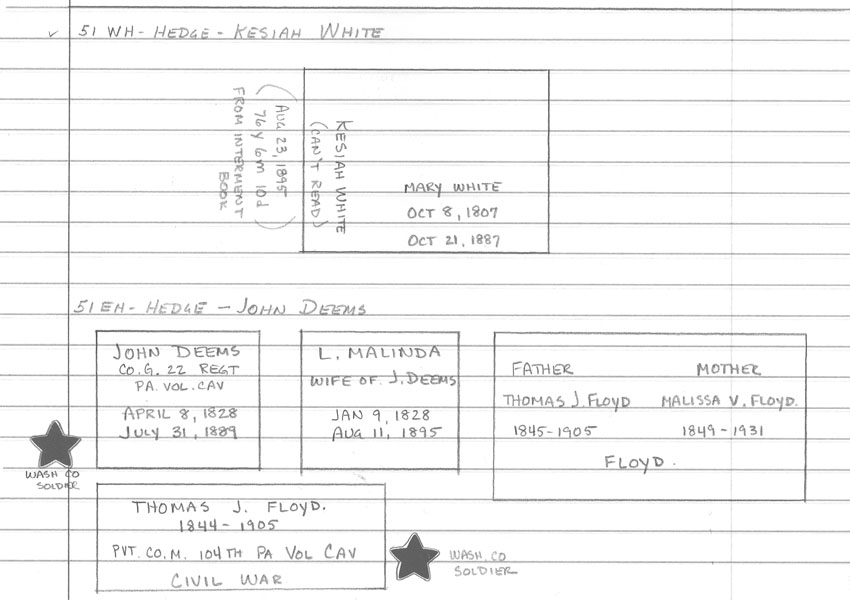 ✓ 51 WH- HEDGE - KESIAH WHITE
KESIAH WHITE
(CAN'T READ)
(AUG 23, 1895
76 y 6m 10d
FROM INTERMENT
BOOK)
MARY WHITE
OCT 8, 1807
OCT 21, 1887
51 EH- HEDGE - JOHN DEEMS
JOHN DEEMS
CO. G. 22 REGT
PA. VOL. CAV
APRIL 8, 1828
JULY 31, 1889
WASH CO
SOLDIER
L. MALINDA
WIFE OF J. DEEMS
JAN 9, 1828
AUG 11, 1895
FATHER MOTHER
THOMAS J. FLOYD MALISSA V. FLOYD.
1845-1905 1849-1931
FLOYD.
THOMAS J. FLOYD.
1844-1905
PVT. CO. M. 104TH PA VOL CAV
CIVIL WAR
WASH. CO
SOLDIER